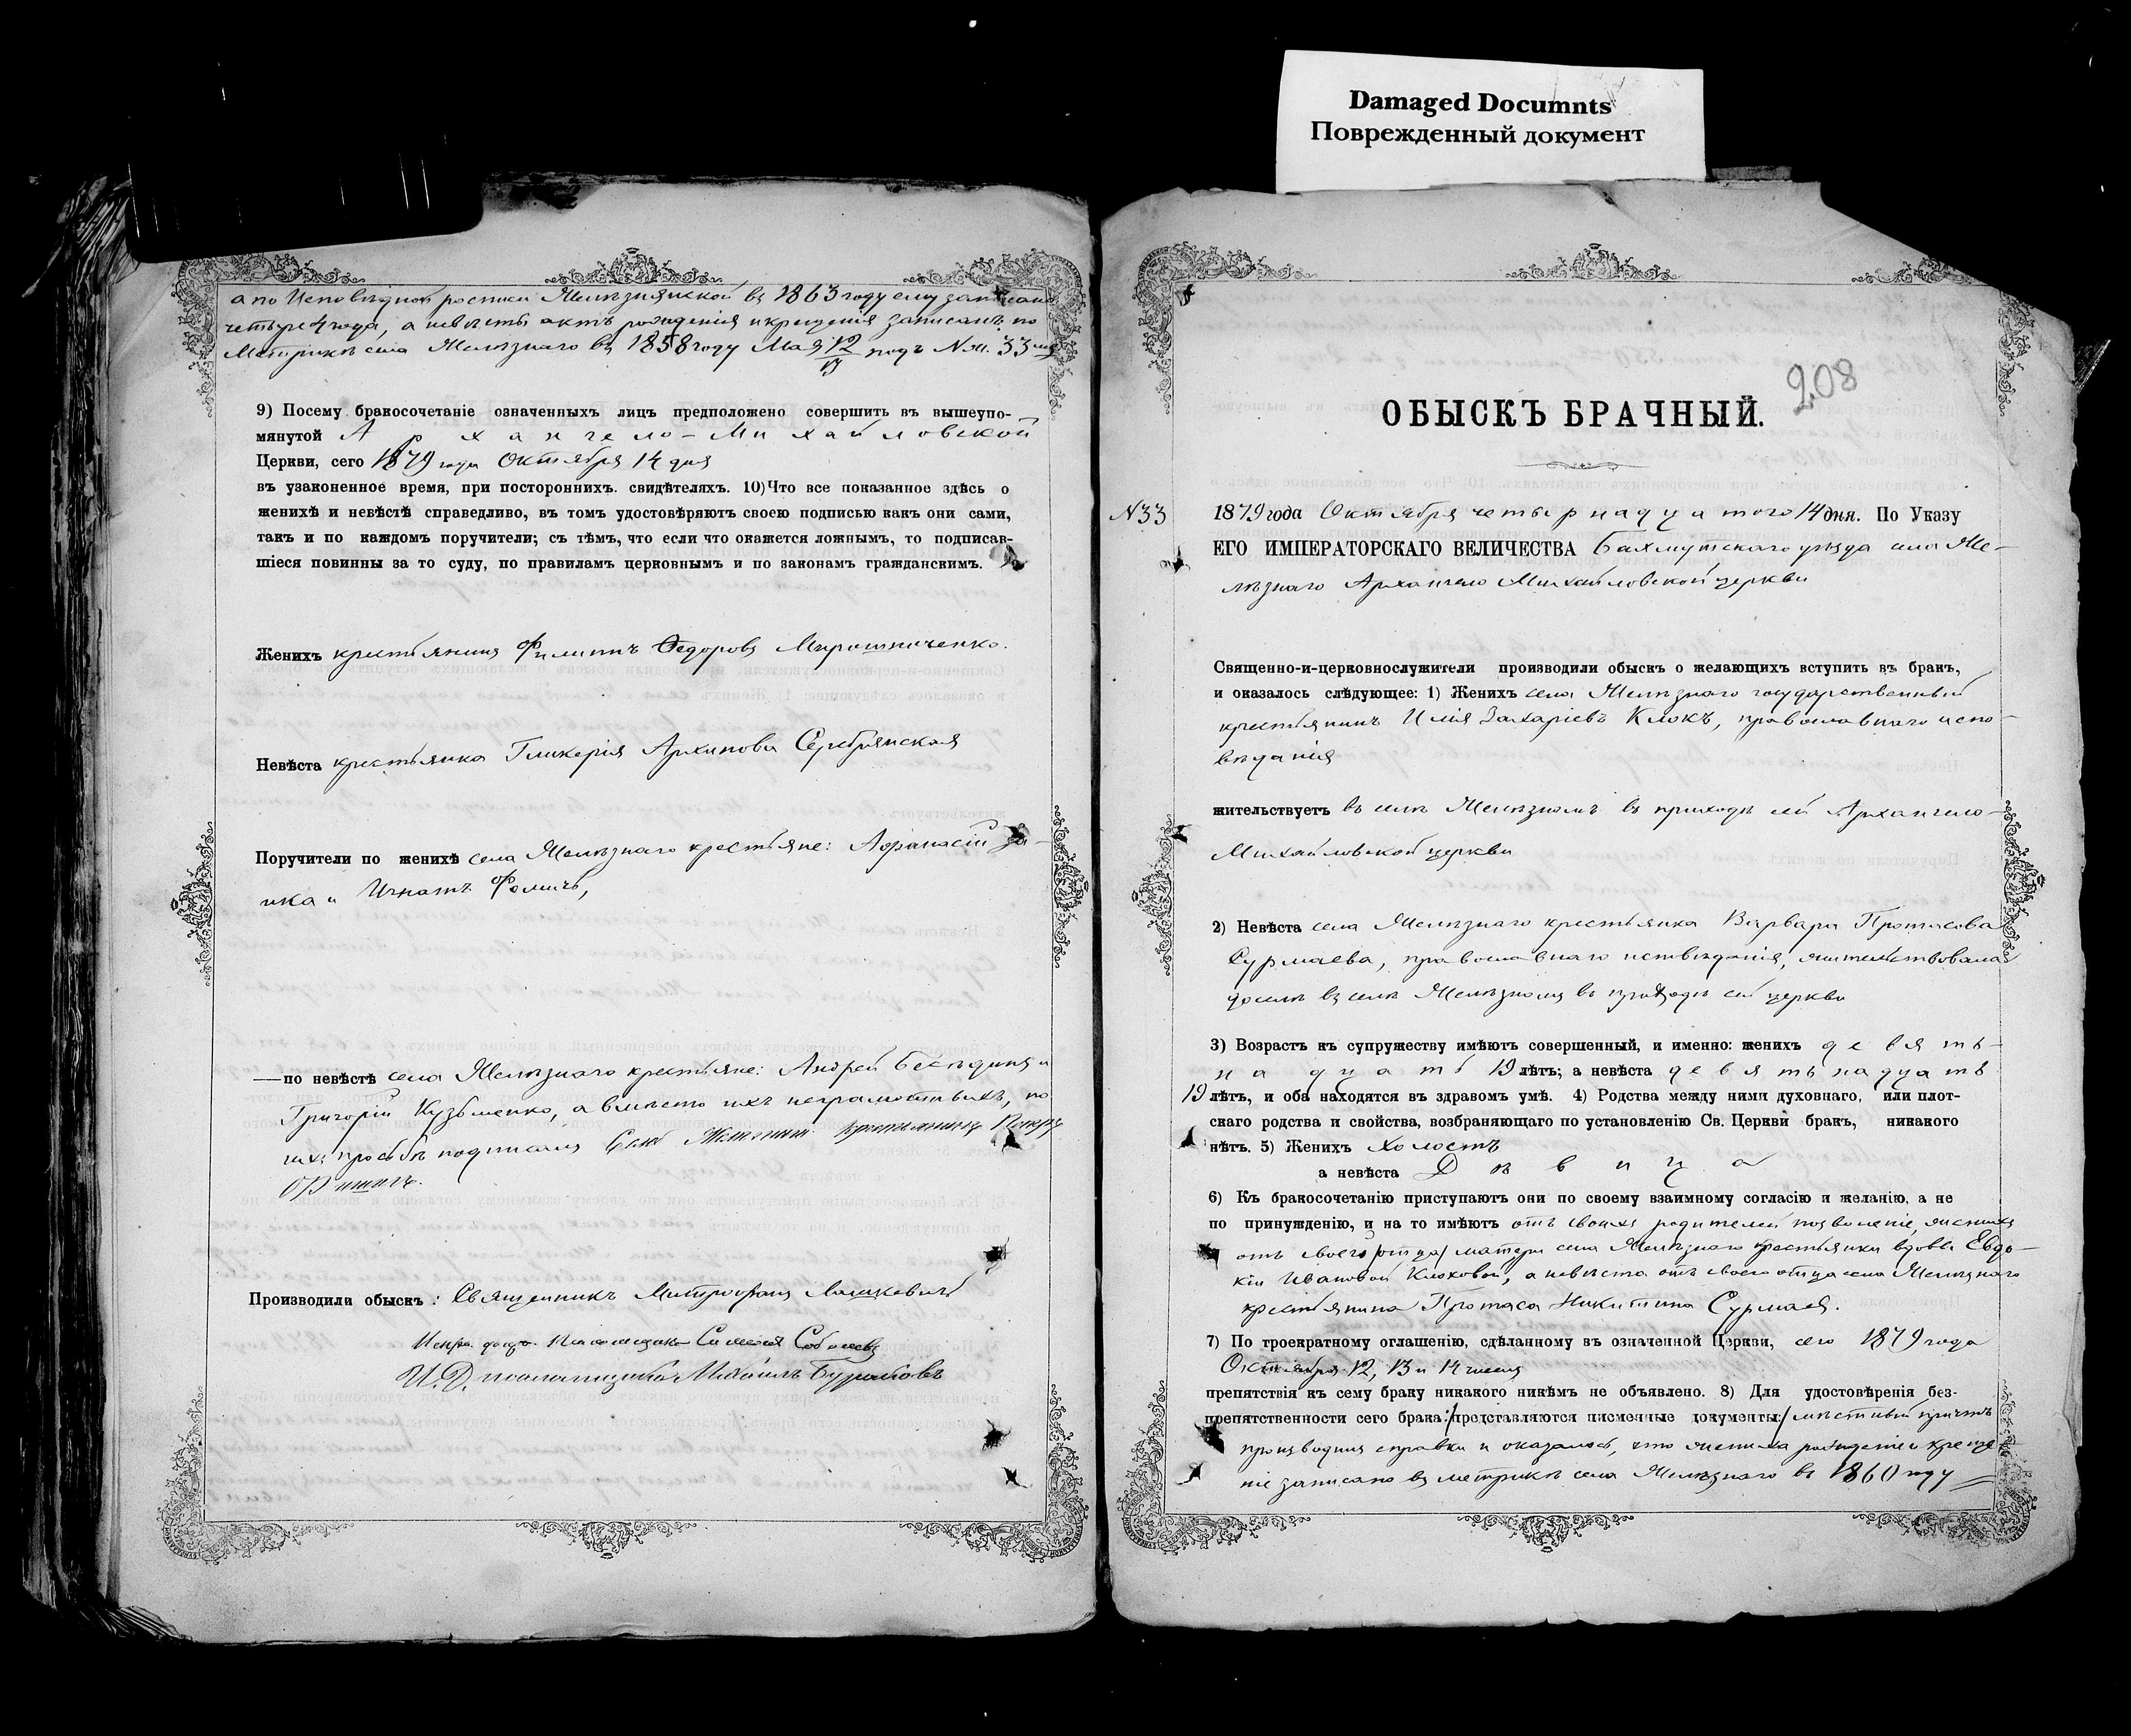 Damaged Documnts
Поврежденный документ
а по Исповѣдной росписи Желѣзнянской въ 1863 году ему записано
четыре 4 года, а невѣсты актъ рожденія и крещенія записанъ по
Метрикѣ села Желѣзнаго въ 1858 году Мая 12/13 подъ № ж. 33 мъ
9) Посему бракосочетаніе означенныхъ лицъ предположено совершить въ вышеупо-
мянутой Архангело-Михайловской
Церкви, сего 1879 года Октября 14 дня
въ узаконенное время, при постороннихъ свидѣтеляхъ. 10) Что все показанное здѣсь о
женихѣ и невѣстѣ справедливо, въ томъ удостовѣряютъ своею подписью какъ они сами,
такъ и по каждомъ поручители; съ тѣмъ, что если что окажется ложнымъ, то подписав-
шіеся повинны за то суду, по правиламъ церковнымъ и по законамъ гражданскимъ.
Женихъ крестьянинъ Филиппъ Ѳедоровъ Мирошниченко.
Невѣста крестьянка Гликерія Архипова Серебрянская
Поручители по женихѣ села Желѣзнаго крестьяне: Аѳанасій За-
ика и Игнатъ Фомичъ,
—по невѣстѣ села Желѣзнаго крестьяне: Андрей Бесѣдинъ и
Григорій Кузьменко, а вмѣсто ихъ неграмотныхъ, по
ихъ просьбѣ подписался Села крестьянинъ
Производили обыскъ: Священникъ Митрофанъ Машкевичъ
Испр. долж. Псаломщика Симеонъ Соболевъ
И. Д. псаломщика Михаилъ
208
ОБЫСКЪ БРАЧНЫЙ.
№33 1879 года Октября четырнадцатого 14 дня. По Указу
ЕГО ИМПЕРАТОРСКАГО ВЕЛИЧЕСТВА Бахмутскаго уѣзда села Же-
лѣзнаго Архангело Михайловской церкви
Священно-и-церковнослужители производили обыскъ о желающихъ вступить въ бракъ,
и оказалось слѣдующее: 1) Женихъ села Желѣзнаго государственный
крестьянинъ Илія Захаріевъ Клокъ, православнаго испо-
вѣданія
жительствуетъ въ селѣ Желѣзномъ въ приходѣ сей Архангело-
Михайловской церкви
2) Невѣста села Желѣзнаго крестьянка Варвара Протасова
Сурмаева, православнаго исповѣданія, жительствовала
доселѣ въ селѣ Желѣзномъ въ приходѣ сей церкви
3) Возрастъ къ супружеству имѣютъ совершенный, и именно: женихъ девять-
надцать 19 лѣтъ; а невѣста девятьнадцать
19 лѣтъ, и оба находятся въ здравомъ умѣ. 4) Родства между ними духовнаго, или плот-
скаго родства и свойства, возбраняющаго по установленію Св. Церкви бракъ, никакого
нѣтъ. 5) Женихъ холостъ
а невѣста Дѣвица
6) Къ бракосочетанію приступаютъ они по своему взаимному согласію и желанію, а не
по принужденію, и на то имѣютъ отъ своихъ родителей позволеніе, женихъ
отъ своего /отца/ матери села Желѣзнаго крестьянки вдовы Евдо-
кіи Ивановой Клоковой, а невѣста отъ своего отца села Желѣзнаго
крестьянина Протаса Никитина Сурмаев.
7) По троекратному оглашенію, сдѣланному въ означенной Церкви, сего 1879 года
Октября 12, 13 и 14 чиселъ
препятствія къ сему браку никакого никѣмъ не объявлено. 8) Для удостовѣренія без-
препятственности сего брака:/представляются писменные документы:/ мѣстный причтъ
производилъ справки и оказалось, что жениха рожденіе и креще-
ніе записано въ метрикѣ села Желѣзнаго въ 1860 году